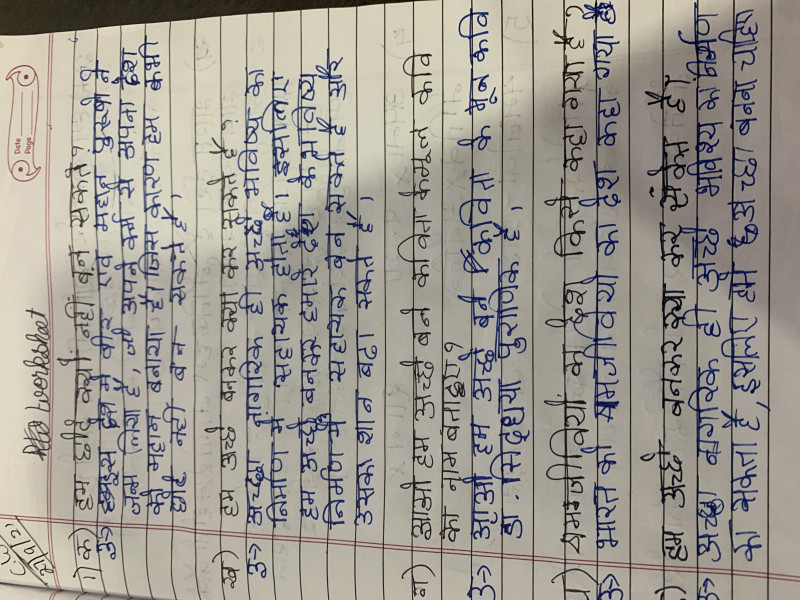 Date
Page
Worksheet
21/9/21
1) क) हम छोटे क्यों नहीं बन सकते?
उ→ इस देश में वीर एवं महान पुरुषों ने
जन्म लिया है, जो अपने कर्म से अपना देश
को महान बनाया है। जिस कारण हम कभी
छोटे नहीं बन सकते हैं।
ख) हम अच्छे बनकर क्या कर सकते हैं?
उ→ अच्छा नागरिक ही अच्छे भविष्य का
निर्माण में सहायक होता है। इसलिए
हम अच्छे बनकर हमारे देश के भविष्य
निर्माण में सहायक बन सकते हैं और
उसका शान बढ़ा सकते हैं।
ग) आओ हम अच्छे बने कविता के मूल कवि
का नाम बताइए?
उ→ आओ हम अच्छे बने कविता के मूल कवि
डा. सिद्धया पुराणिक हैं।
घ) श्रमजीवियों का देश किसे कहा गया है?
उ→ भारत को श्रमजीवियों का देश कहा गया है
) हम अच्छे बनकर क्या कर सकते हैं?
उ→ अच्छा नागरिक ही अच्छे भविश्य का निर्माण
का सकता है, इसलिए हमें अच्छा बनना चाहिए